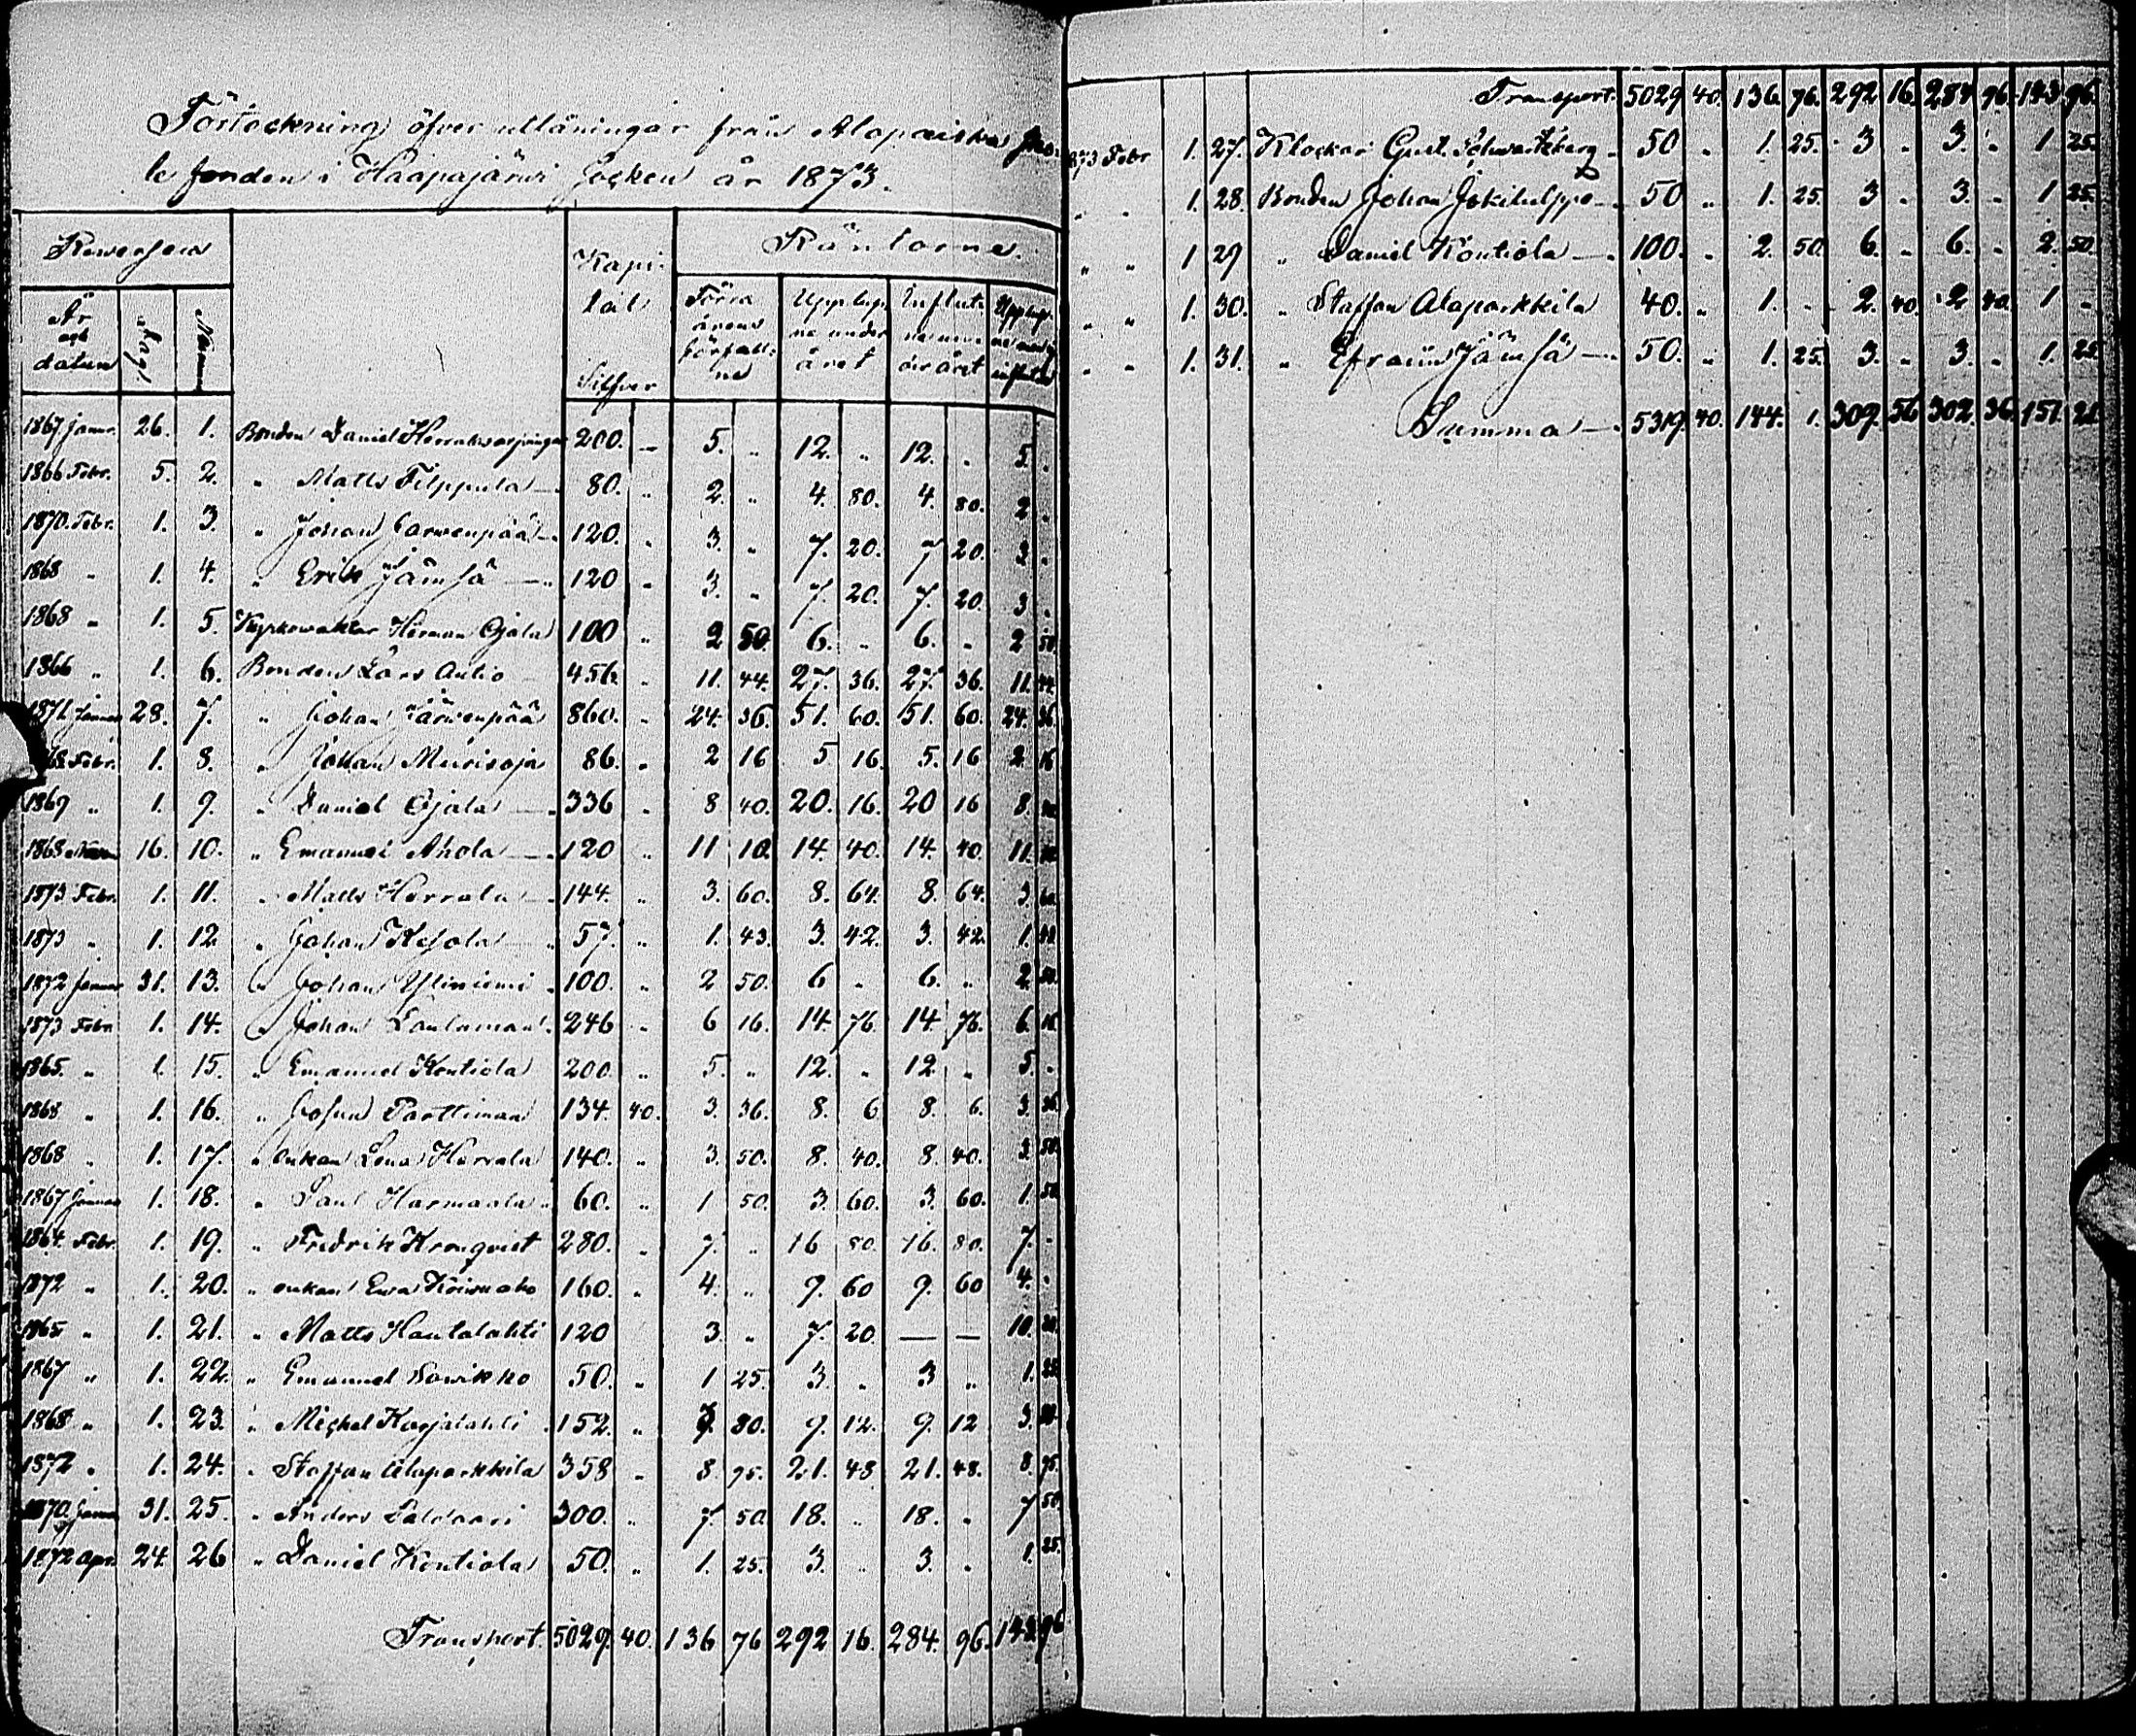 Förteckning öfver utlåningar från Alapaiska
le fonden i Haapajärwi Socken år 1873.
Reversens Kapital Silfver Räntorne.
År och datum Dag. Num Förra årens förfallne Upplupne under året Influtne under året Upplupne men ej influtne
1867 Janr. 26. 1. Bonden Daniel 200. — 5. „ 12. „ 12. „ 5. „
1866 Febr. 5. 2. „ Matts Filppula — 80. „ 2. „ 4. 80. 4. 80. 2 „
1870. Febr. 1. 3. „ Johan Jarwenpää — 120. „ 3. „ 7. 20. 7 20. 3 „
1868 „ 1. 4. „ Erik Jämsä — 120 „ 3. „ 7. 20. 7. 20. 3 „
1868 „ 1. 5. Kyrkowaktar Herman Ojala 100 „ 2 50 6. „ 6. „ 2 50
1866 „ 1. 6. Bonden Lars Autio 456. „ 11. 44. 27. 36. 27. 36. 11. 44.
1871 Januar 28. 7. „ Johan Järwenpää 860. „ 24. 36. 51. 60. 51. 60. 24. 36
68 Febr. 1. 8. „ Johan Muurisoja 86. „ 2 16 5 16. 5. 16 2 16
1869 „ 1. 9. „ Daniel Ojala — 336 „ 8 40. 20. 16. 20 16 8. 40
1868 16. 10. „ Emanuel Ahola — 120 „ 11 10. 14. 40. 14. 40. 11. 10
1873 Febr. 1. 11. „ Matts Herrala — 144. „ 3. 60. 8. 64. 8. 64. 3. 60.
1873 „ 1. 12 „ Johan Kesola — 57. „ 1. 43. 3. 42. 3. 42. 1. 43
1872 Januar 31. 13. „ Johan Yliniemi 100. „ 2 50. 6 „ 6. „ 2. 50.
1873 Febr 1. 14. „ Johan Lautamaa 246 „ 6 16. 14 76 14 76. 6. 16
1865. „ 1. 15. „ Emanuel Kontiola 200. „ 5. „ 12. „ 12 „ 5. „
1868 „ 1. 16. „ Johan Parttimaa 134. 40. 3. 36. 8. 6 8. 6. 3. 36
1868 „ 1. 17. „ enkan Lena Herrala 140. „ 3. 50. 8. 40. 8. 40. 3 50.
1867 Januar 1. 18. „ Paul Harmaala „ 60. „ 1 50. 3. 60. 3. 60. 1. 50.
1864. Febr. 1. 19. „ Fredrik Kronqvist 280. „ 7. „ 16 80. 16. 80. 7. „
1872 „ 1. 20. „ enkan Ewa Koiwuaho 160. „ 4. „ 9. 60 9. 60 4. „
1865 „ 1. 21. „ Matts Hautalahti 120 3. „ 7. 20. — — 10. 20.
1867 „ 1. 22. „ Emanuel Sawikko 50. „ 1 25. 3. „ 3 „ 1. 25
1868 „ 1. 23. „ Michel Karjalahti 152. „ 3. 80. 9. 12. 9. 12 3. 80
1872 „ 1. 24. „ Staffan Alaparkkila 358 „ 8. 95. 21. 48 21. 48. 8. 95.
1870. Januar 31. 25. „ Anders 300. „ 7. 50. 18. „ 18. „ 7 50
1872 Apr. 24. 26 „ Daniel Kontiola 50. „ 1. 25. 3. „ 3. „ 1. 25.
Transport. 5029. 40. 136 76 292 16. 284. 96. 143 96
Transport. 5029 40. 136. 76. 292 16. 284 96. 143 96.
873 Febr 1. 27. Klockar Gust. Schwartzberg — 50 „ 1. 25. 3 „ 3. „ 1 25.
„ „ 1. 28. Bonden Johan Jokihilppo — 50 „ 1. 25. 3 „ 3. „ 1 25.
„ „ 1 29 „ Daniel Kontiola — 100. „ 2. 50. 6. „ 6. „ 2. 50.
„ „ 1. 30. „ Staffan Alaparkkila 40. „ 1. „ 2. 40. 2 40. 1 „
„ „ 1. 31. „ Efraim Jämsä — 50. „ 1. 25. 3. „ 3. „ 1. 25
Summa — 5319. 40. 144. 1. 309. 56 302. 36. 151. 21